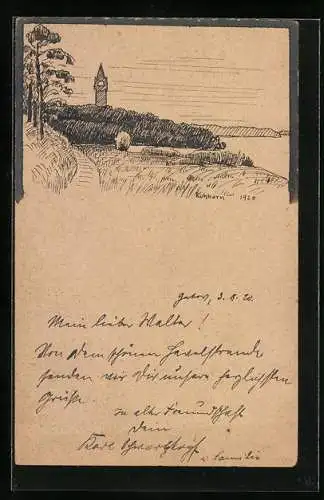 1920
Gatow, 3.8.20.
Mein lieber Walter!
Von dem schönen Havelstrande
senden wir Dir unsere herzlichsten
Grüße.
In alter Freundschaft
Dein
Karl
u. Familie